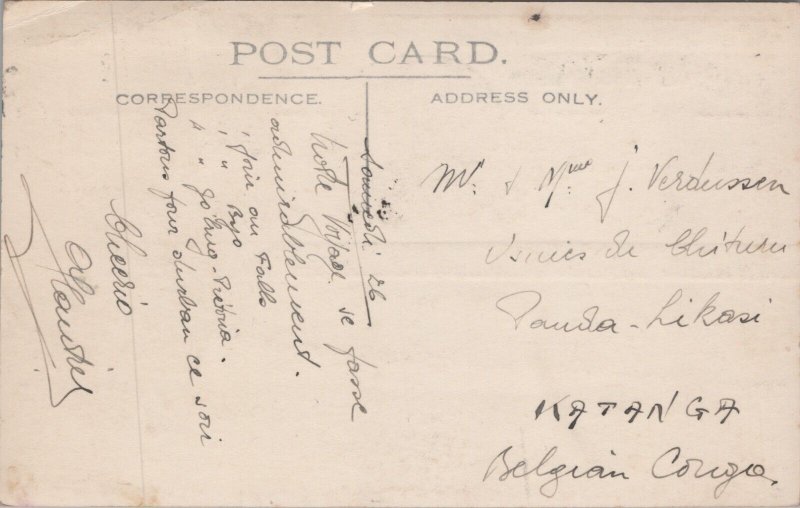 POST CARD.
CORRESPONDENCE.
ADDRESS ONLY.
Samedi 26
Notre Voyage se passe
admirablement.
1 jour au Falls
1 " Byo
4 " Jo'burg-Pretoria.
Partons pour Durban ce soir
Cheerio
Mr. & Mme J. Verdussen
Usines de Chituru
Panda-Likasi
KATANGA
Belgian Congo.